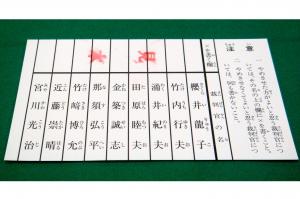 注意
一 やめさせた方がよいと思う裁判官につ
いては、その名の上の欄に×を書くこと。
二 やめさせなくてよいと思う裁判官につ
いては、何も書かないこと。
×を書く欄
裁判官の名
櫻井龍子
竹内行夫
涌井紀夫
田原睦夫
金築誠志
那須弘平
竹﨑博允
近藤崇晴
宮川光治
見本